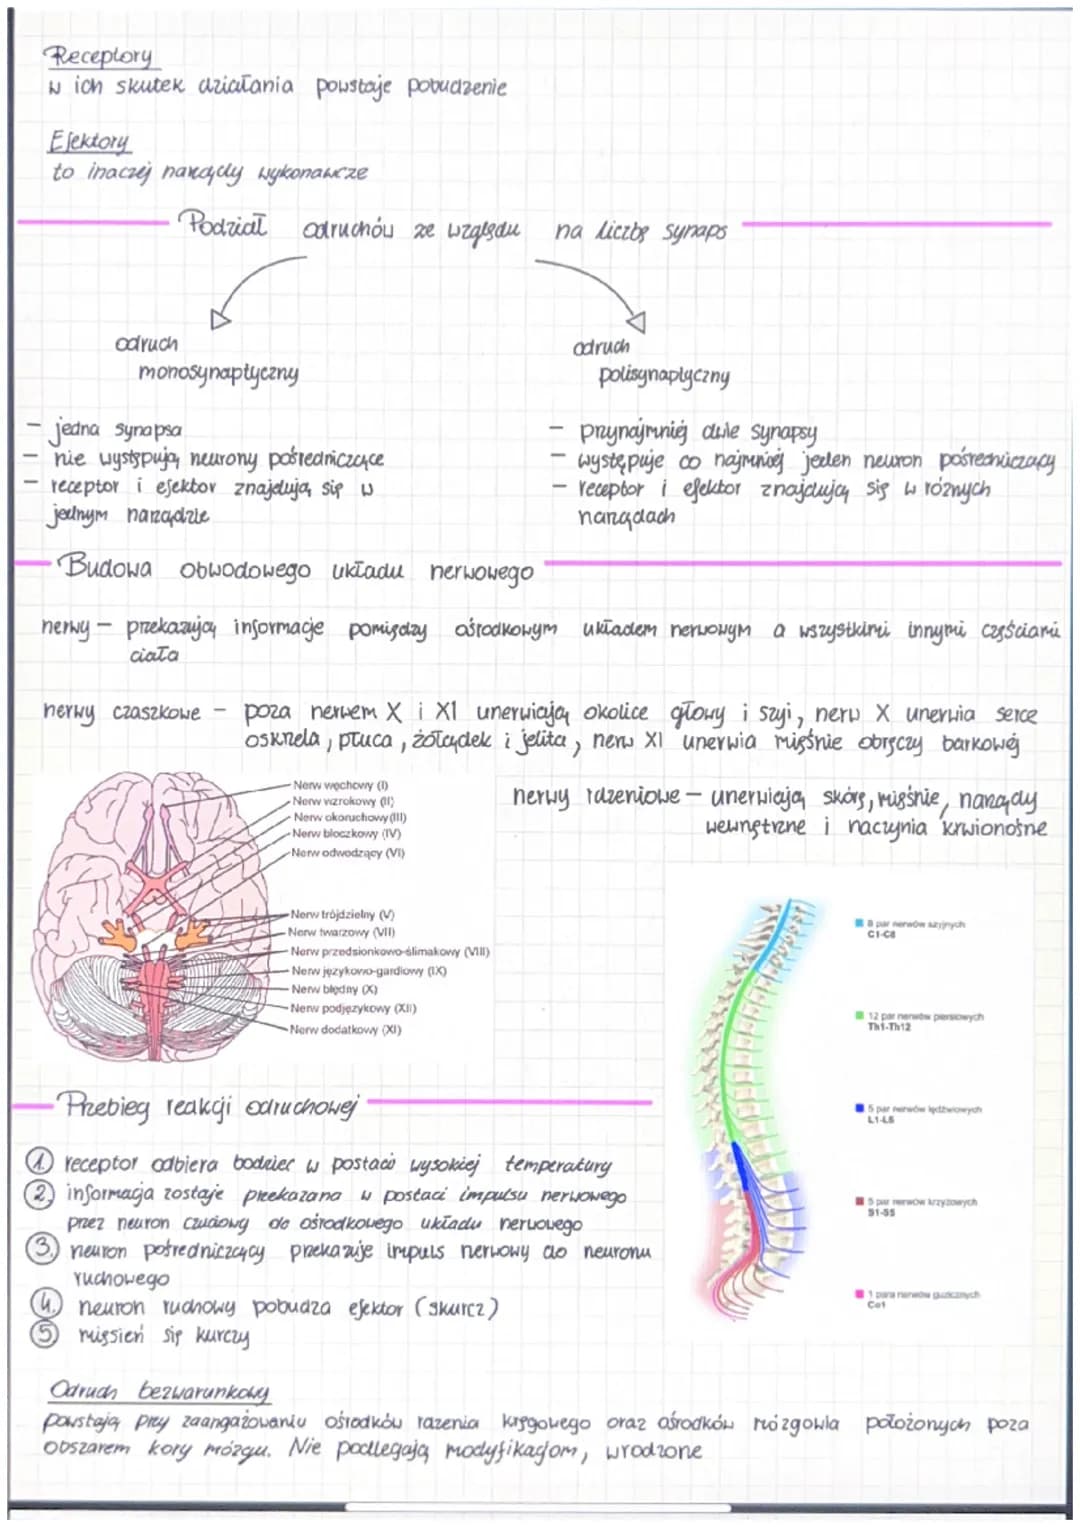 Receptory
w ich skutek działania powstaje pobudzenie
Efektory
to inaczej narządy wykonawcze
Podział odruchów ze względu na liczbę synaps
odruch
monosynaptyczny
odruch
polisynaptyczny
- jedna synapsa
- nie występują neurony pośredniczące
- receptor i efektor znajdują się w
jednym narządzie
- przynajmniej dwie synapsy
- występuje co najmniej jeden neuron pośredniczący
- receptor i efektor znajdują się w różnych
narządach
Budowa obwodowego układu nerwowego
nerwy - przekazują informacje pomiędzy ośrodkowym układem nerwowym a wszystkimi innymi częściami
ciała
nerwy czaszkowe - poza nerwem X i XI unerwiają okolice głowy i szyi, nerw X unerwia serce
oskrzela, płuca, żołądek i jelita, nerw XI unerwia mięśnie obręczy barkowej
Nerw węchowy (I)
Nerw wzrokowy (II)
Nerw okoruchowy (III)
Nerw bloczkowy (IV)
Nerw odwodzący (VI)
Nerw trójdzielny (V)
Nerw twarzowy (VII)
Nerw przedsionkowo-ślimakowy (VIII)
Nerw językowo-gardłowy (IX)
Nerw błędny (X)
Nerw podjęzykowy (XII)
Nerw dodatkowy (XI)
nerwy rdzeniowe - unerwiają skórę, mięśnie, narządy
wewnętrzne i naczynia krwionośne
8 par nerwów szyjnych
C1-C8
12 par nerwów piersiowych
Th1-Th12
5 par nerwów lędźwiowych
L1-L5
5 par nerwów krzyżowych
S1-S5
1 para nerwów guzicznych
Co1
Przebieg reakcji odruchowej
1. receptor odbiera bodziec w postaci wysokiej temperatury
2. informacja zostaje przekazana w postaci impulsu nerwowego
przez neuron czuciowy do ośrodkowego układu nerwowego
3. neuron pośredniczący przekazuje impuls nerwowy do neuronu
ruchowego
4. neuron ruchowy pobudza efektor (skurcz)
5 mięsień się kurczy
Odruch bezwarunkowy
powstają przy zaangażowaniu ośrodków rdzenia kręgowego oraz ośrodków mózgowia położonych poza
obszarem kory mózgu. Nie podlegają modyfikacjom, wrodzone